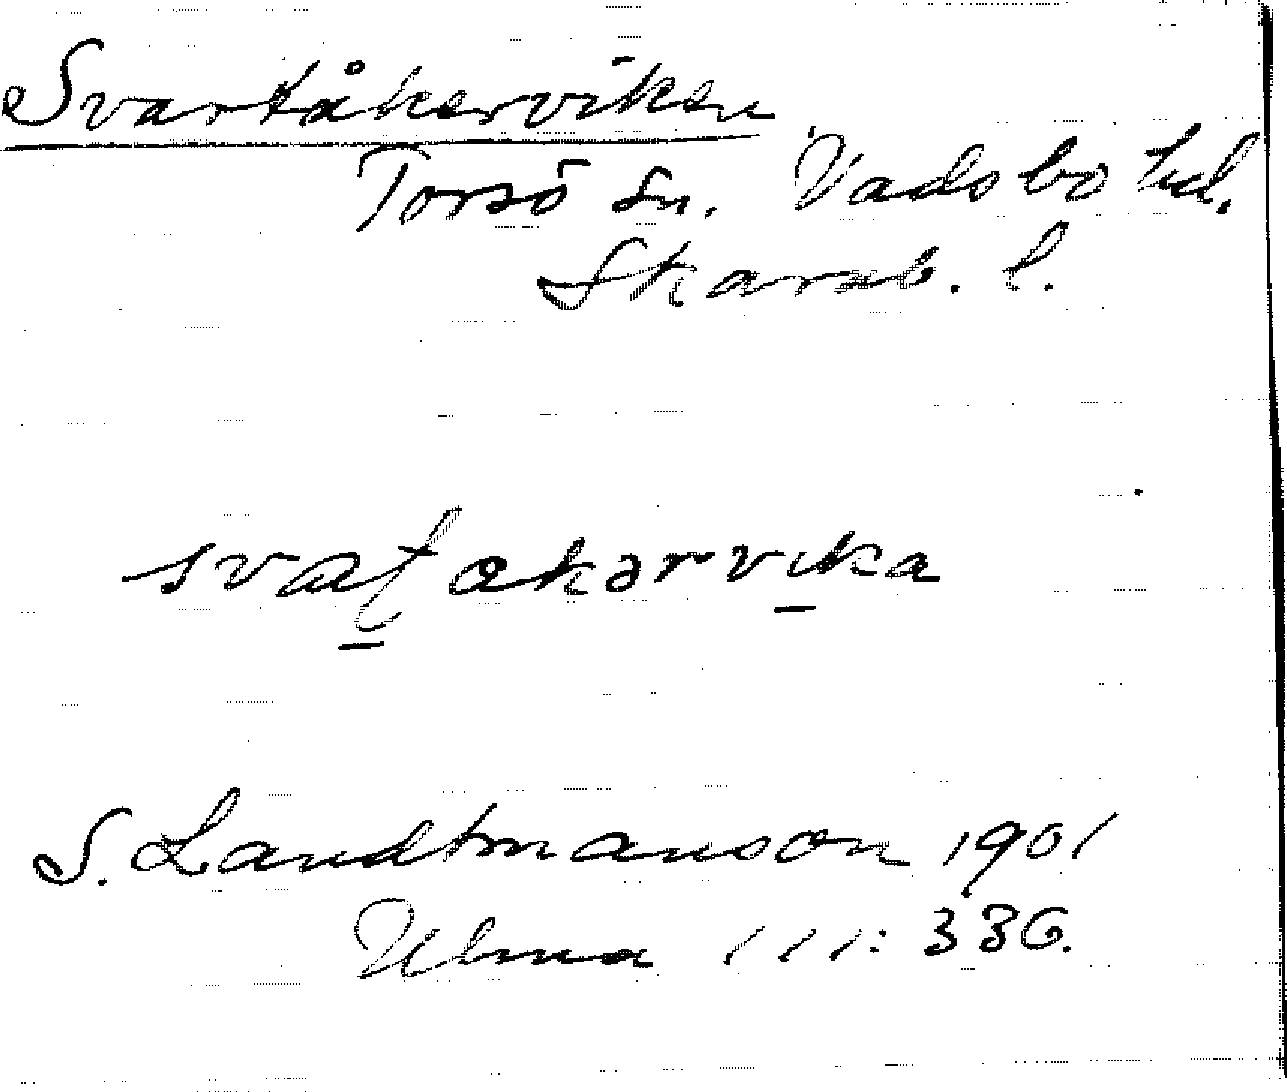 Svartåkerviken
Torsö Sn. Vadsbo hd.
Skarab. l.
svaʈakərvika
S. Landtmanson 1901
Ulma 111: 336.